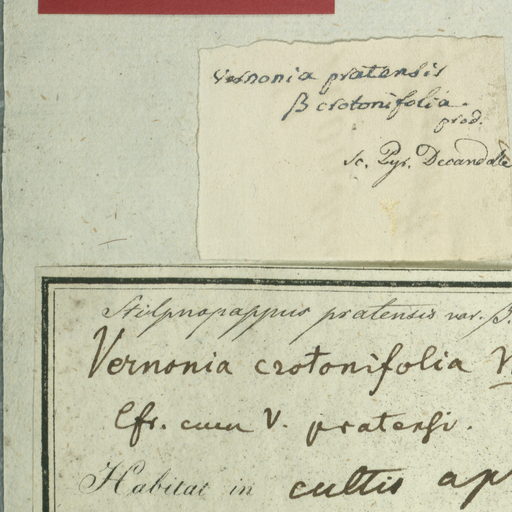 Vernonia pratensis
β crotonifolia.
prod.
sc. Pyr. Decandolle
Stilpnopappus pratensis var. β.
Vernonia crotonifolia
Cfr. cum V. pratensi.
Habitat in cultis